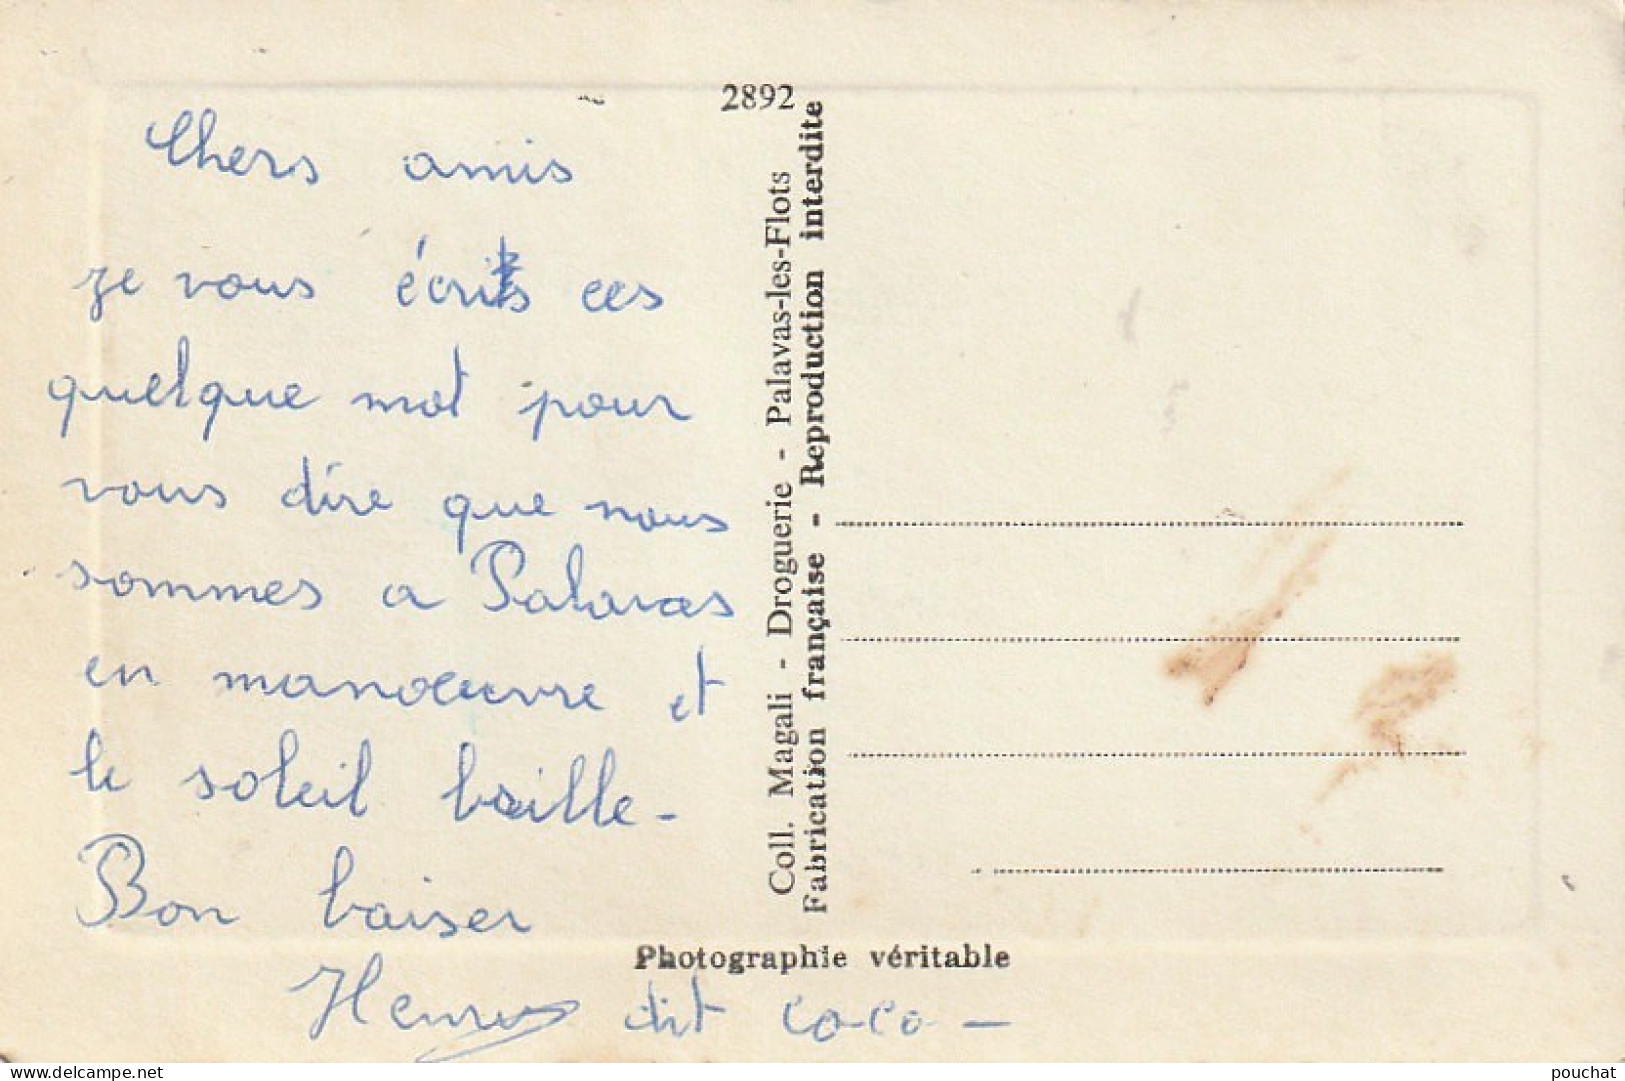 2892
Chers amis
je vous écris ces
quelque mot pour
vous dire que nous
sommes a Palavas
en manœuvre et
le soleil brille -
Bon baiser
dit co-co -
Coll. Magali - Droguerie - Palavas-les-Flots
Fabrication française - Reproduction interdite
Photographie véritable
delcampe.net
pouchat